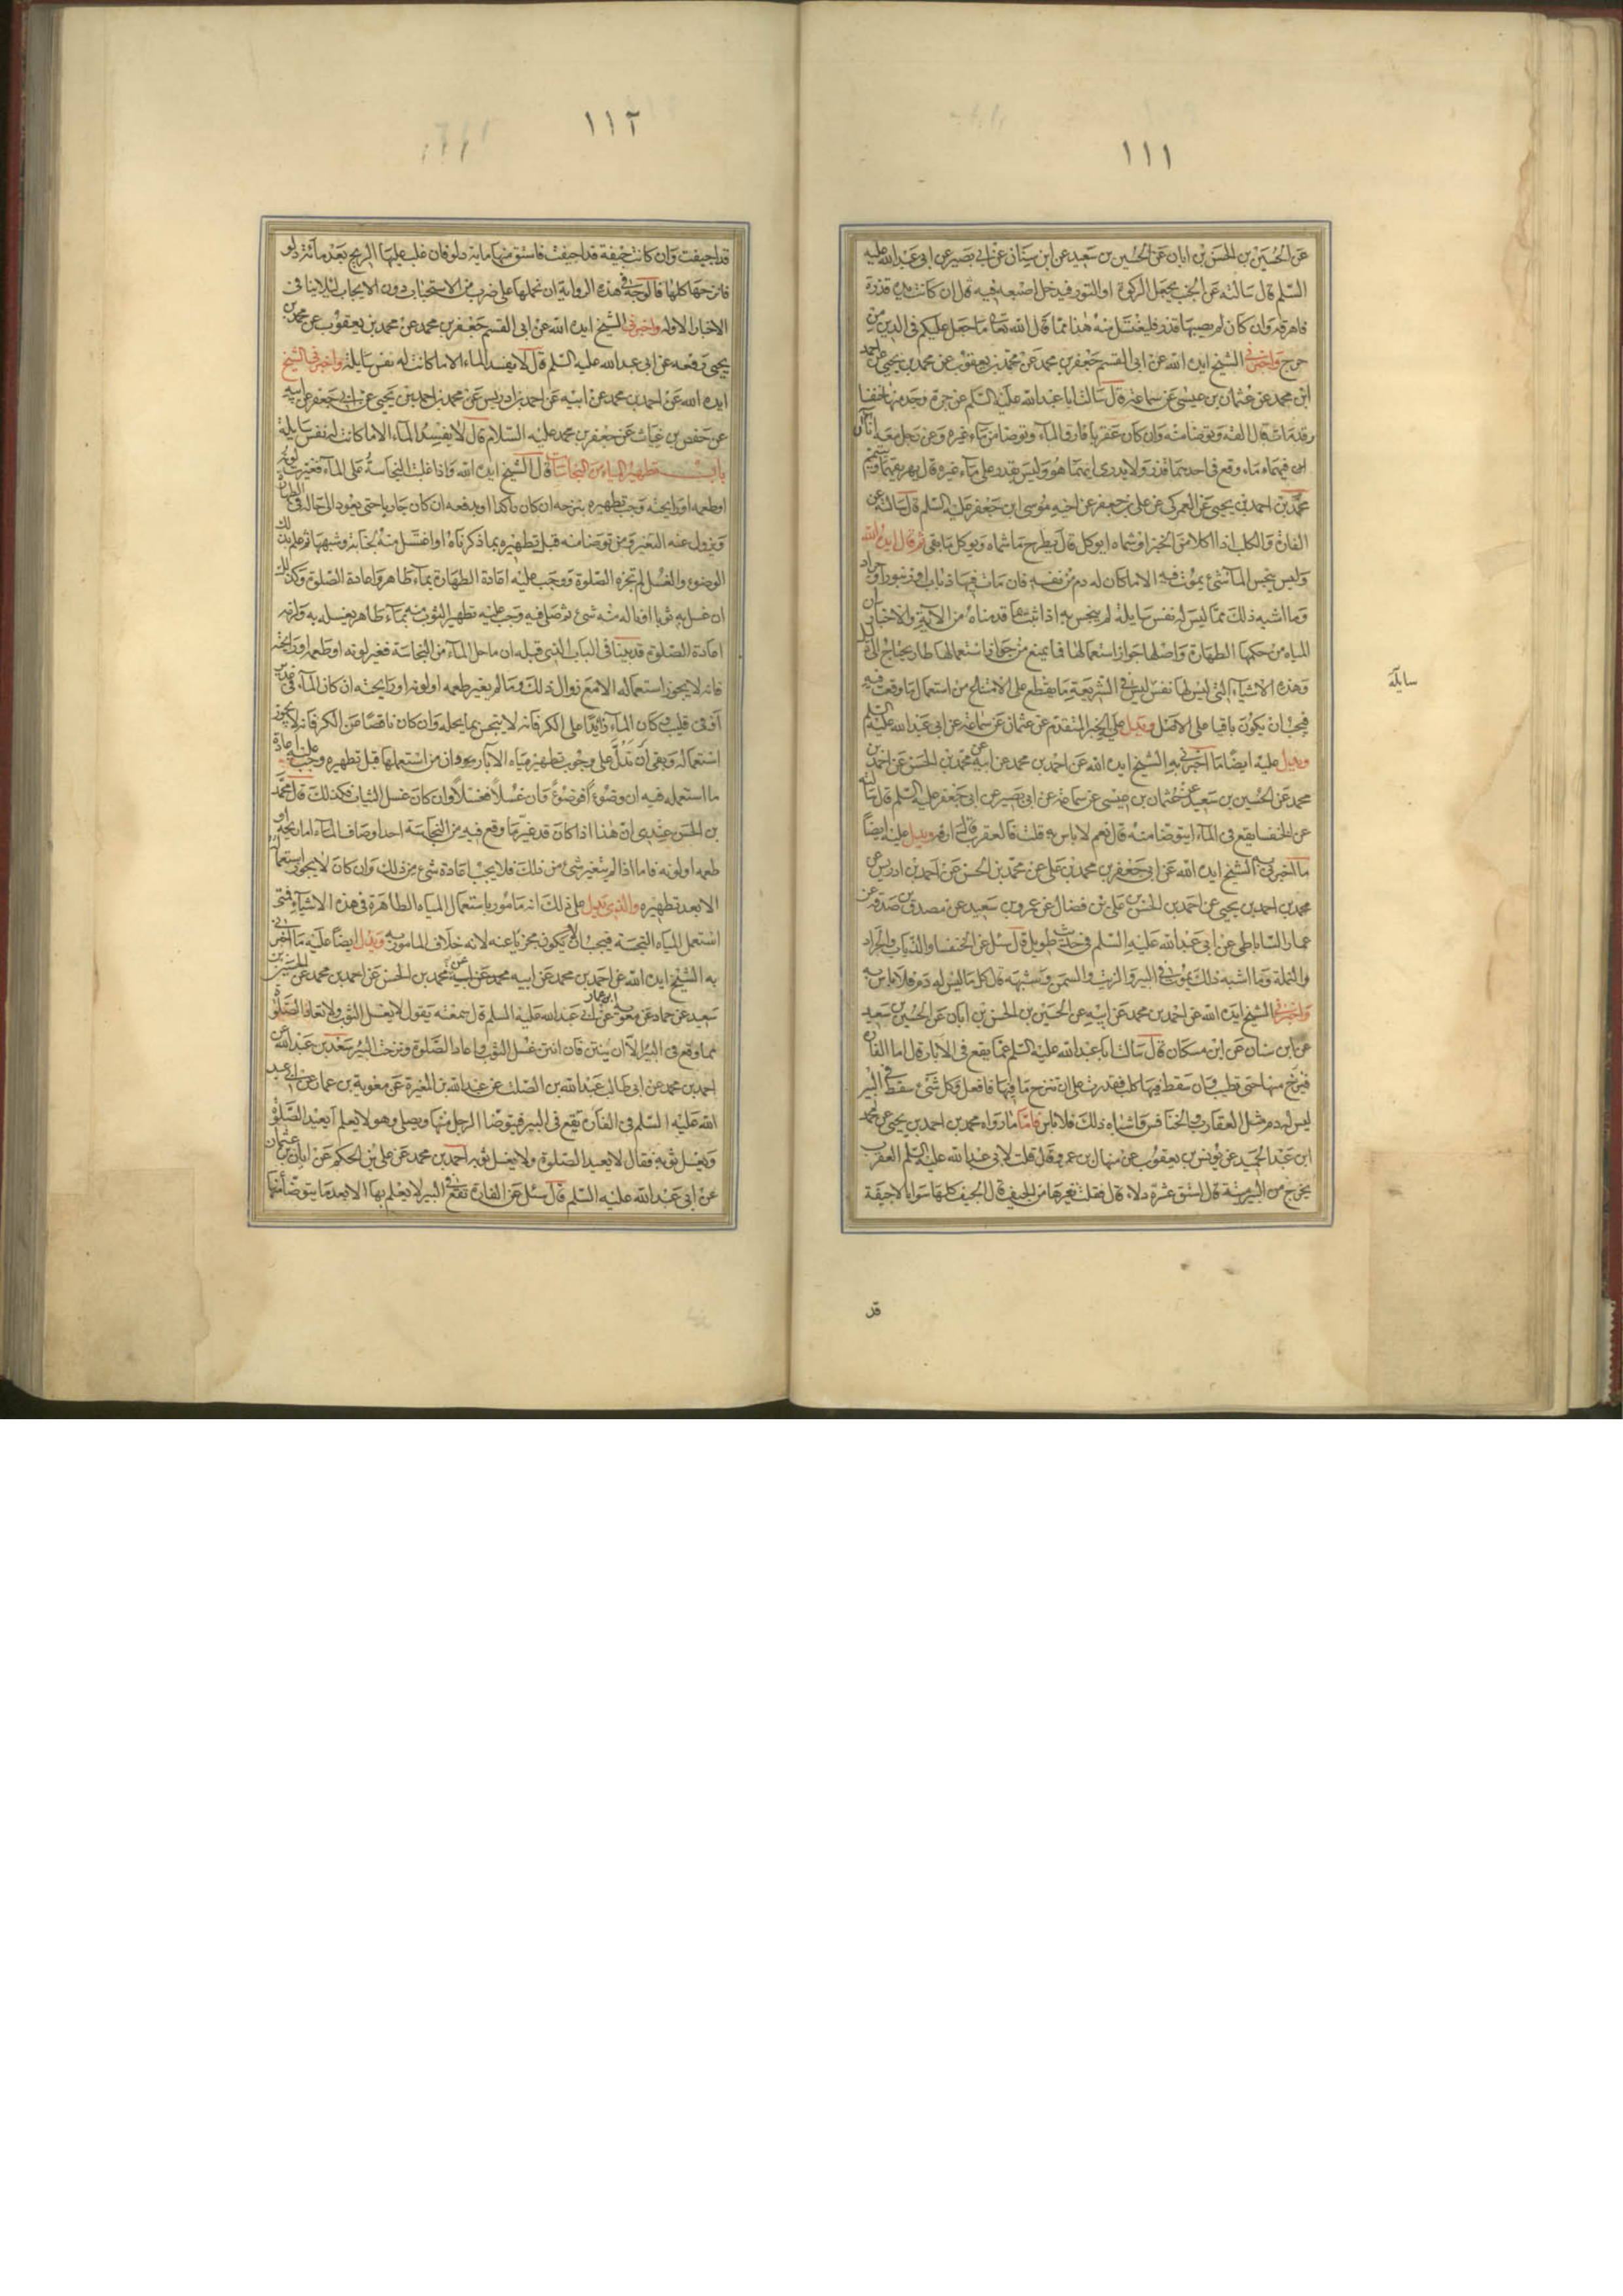 ١١١
عن الحسين بن الحسن بن ابان عن الحسين بن سعيد عن ابن سنان عن ابى بصير عن ابى عبدالله عليه
السلم قال سالته عن الجنب يجعل الركوة او التور فيدخل اصبعه فيه قال ان كانت يده قذرة
فاهرقه وان كان لم يصبها قذر فليغتسل منه هذا مما قال الله تعالى ما جعل عليكم فى الدين من
حرج واخبرنى الشيخ ايده الله عن ابى القسم جعفر بن محمد عن محمد بن يعقوب عن محمد بن يحيى عن احمد
ابن محمد عن عثمان بن عيسى عن سماعة قال سالت ابا عبدالله عليه السلم عن جرة وجد فيها خنفسا
قد مات قال القه وتوضا منه وان كان عقربا فارق المآء وتوضا من مآء غيره وعن رجل معه اناآن
فيهما مآء وقع فى احدهما قذر ولا يدرى ايهما هو وليس يقدر على مآء غيره قال يهريقهما ويتيمم
محمد بن احمد بن يحيى عن العمركى عن على بن جعفر عن اخيه موسى ابن جعفر عليه السلم قال سالته عن
الفارة والكلب اذا اكلا من الخبز او شماه ايوكل قال يطرح ما شماه ويوكل ما بقى ثم قال ايده الله
وليس ينجس المآء شىء يموت فيه الا ما كان له دم من نفسه فان مات فيها ذباب او زنبور او جراد
وما اشبه ذلك مما ليس له نفس سايلة لم ينجس به اذا ثبت بما قدمناه من الآية والاخبار ان
المياه من حكمها الطهارة واصلها جواز استعمالها فما يمنع من جواز استعمالها طار يحتاج الى
وهذه الاشيآء التى ليس لها نفس ليس فى الشريعة ما يقطع على الامتناع من استعمال ما وقعت فيه
فيجب ان يكون باقيا على الاصل ويدل على الخبر المتقدم عن عثمان عن سماعة عن ابى عبدالله عليه السلم
ويدل عليه ايضا ما اخبرنى به الشيخ ايده الله عن احمد بن محمد عن ابيه عن محمد بن الحسن عن احمد بن
محمد عن الحسين بن سعيد عن عثمان بن عيسى عن سماعة عن ابى بصير عن ابى جعفر عليه السلم قال سالته
عن الخنفسا يقع فى المآء ايتوضا منه قال نعم لا باس به قلت فالعقرب قال ارقه ويدل عليه ايضا
ما اخبرنى به الشيخ ايده الله عن ابى جعفر بن محمد بن على عن محمد بن الحسن عن احمد بن ادريس عن
محمد بن احمد بن يحيى عن احمد بن الحسن بن على بن فضال عن عمرو بن سعيد عن مصدق بن صدقه عن
عمار الساباطى عن ابى عبدالله عليه السلم فى حديث طويل قال سئل عن الخنفسا والذباب والجراد
والنملة وما اشبه ذلك يموت فى البير والزيت والسمن وشبهه قال كل ما ليس له دم فلا باس به
واخبرنى الشيخ ايده الله عن احمد بن محمد عن ابيه عن الحسين بن الحسن بن ابان عن الحسين بن سعيد
عن ابن سنان عن ابن مسكان قال سالت ابا عبدالله عليه السلم عما يقع فى الابار قال اما الفاره
فينزح منها حتى تطيب وان سقط فيها كلب فقدرت على ان تنزح ما فيها فافعل وكل شىء سقط فى البير
ليس له دم مثل العقارب والخنافس واشباه ذلك فلا باس فاما ما رواه محمد بن احمد بن يحيى عن محمد
ابن عبد الحميد عن يونس بن يعقوب عن منهال بن عمرو قال قلت لابى عبدالله عليه السلم العقرب
يخرج من البير ميتة قال استق عشرة دلاء قال فقلت فغيرها من الجيف قال الجيف كلها سوا الا جيفة
سايلة
قد
١١٢
قد اجيفت وان كانت جيفة قد اجيفت فاستق منها ماية دلو فان غلب عليها الريح بعد مائة دلو
فانزحها كلها فالوجه فى هذه الرواية ان نحملها على ضرب من الاستحباب دون الايجاب ليلا ينافى
الاخبار الاوله واخبرنى الشيخ ايده الله عن ابى القسم جعفر بن محمد عن محمد بن يعقوب عن محمد بن
يحيى رفعه عن ابى عبدالله عليه السلم قال لا يفسد الماء الا ما كانت له نفس سايلة واخبرنى الشيخ
ايده الله عن احمد بن محمد عن ابيه عن احمد بن ادريس عن محمد بن احمد بن يحيى عن ابى جعفر عن ابيه
عن حفص بن غياث عن جعفر بن محمد عليه السلام قال لا يفسد المآء الا ما كانت له نفس سايلة
باب تطهير المياه من النجاسات قال الشيخ ايده الله واذا غلبت النجاسة على المآء فغيرت لونه
او طعمه او رايحته وجب تطهيره بنزحه ان كان راكدا او بدفعه ان كان جاريا حتى يعود الى حاله فى الطهارة
ويزول عنه التغير ومن توضا منه قبل تطهيره بما ذكرناه او اغتسل منه لجنابة وشبهها ثم علم بذلك
الوضوء والغسل لم تجزه الصلوة ووجب عليه اعادة الطهارة بمآء طاهر واعادة الصلوة وكذلك
ان غسل به ثوبا او ناله منه شىء ثم صلى فيه وجب عليه تطهير الثوب منه بمآء طاهر يغسله به ولزمه
اعادة الصلوة قد بينا فى الباب الذى قبله ان ما حل المآء من النجاسة فغير لونه او طعمه او رايحته
فانه لا يجوز استعماله الا مع زوال ذلك وما لم يغير طعمه او لونه او رايحته ان كان المآء فى غدير
او فى قليب وكان المآء زائدا على الكر فانه لا ينجس بما يحله وان كان ناقصا عن الكر فانه لا يجوز
استعماله وبقى ان ندل على وجوب تطهير مياه الآبار وان من استعملها قبل تطهيره وجب عليه اعادة
ما استعمله فيه ان وضوءا فوضوء وان غسلا فغسلا وان كان غسل الثياب فكذلك قال محمد
بن الحسن عندى ان هذا اذا كان قد غير ما وقع فيه من النجاسة احد اوصاف المآء اما ريحه او
طعمه او لونه فاما اذا لم يتغير شىء من ذلك فلا يجب اعادة شىء من ذلك وان كان لا يجوز استعماله
الا بعد تطهيره والذى يدل على ذلك انه مامور باستعمال المياه الطاهرة فى هذه الاشيآء فمتى
استعمل المياه النجسة فيجب ان لا يكون مجزيا عنه لانه خلاف المامور به ويدل ايضا عليه ما اخبرنى
به الشيخ ايده الله عن احمد بن محمد عن ابيه محمد عن ابيه عن محمد بن الحسن عن احمد بن محمد عن الحسين بن
سعيد عن حماد عن معوية ابن عمار عن ابى عبدالله عليه السلم قال سمعته يقول لا يغسل الثوب ولا تعاد الصلوة
مما وقع فى البئر الا ان ينتن فان انتن غسل الثوب واعاد الصلوة ونزحت البئر سعد بن عبدالله عن
احمد بن محمد عن ابى طالب عبدالله بن الصلت عن عبدالله بن المغيرة عن معوية بن عمار عن ابى عبد
الله عليه السلم فى الفارة تقع فى البير فيتوضا الرجل منها ويصلى وهو لا يعلم ايعيد الصلوة
ويغسل ثوبه فقال لا يعيد الصلوة ولا يغسل ثوبه احمد بن محمد عن على بن الحكم عن ابان بن عثمان
عن ابى عبدالله عليه السلم قال سئل عن الفارة تقع فى البير لا يعلم بها الا بعد ما يتوضأ منها